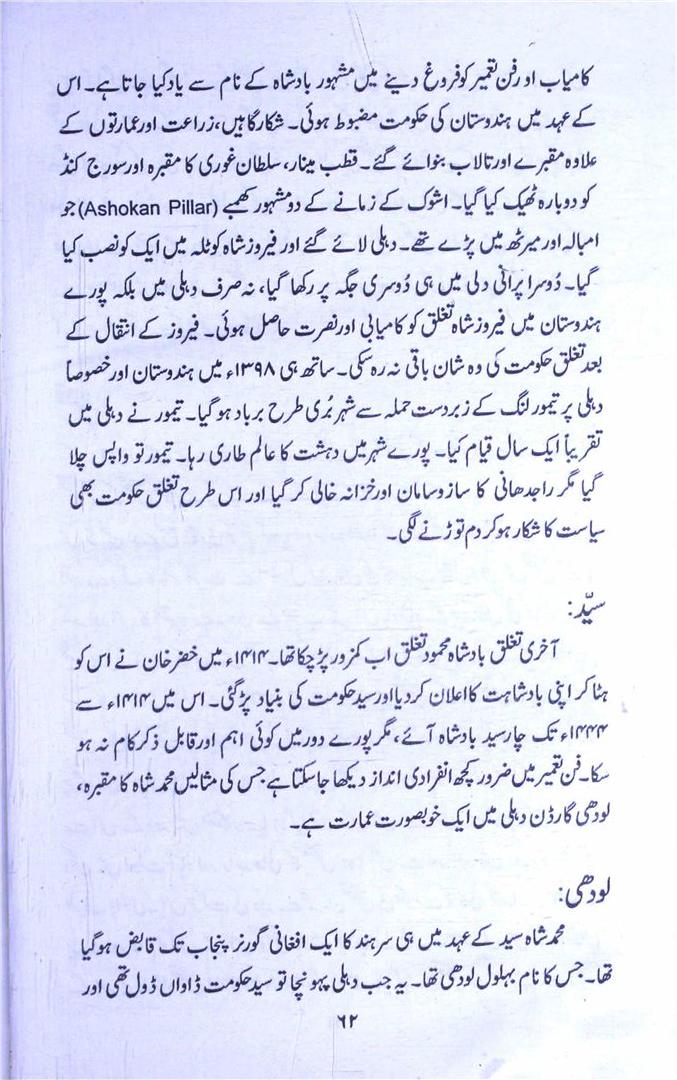 کامیاب اور فن تعمیر کو فروغ دینے میں مشہور بادشاہ کے نام سے یاد کیا جاتا ہے۔ اس
کے عہد میں ہندوستان کی حکومت مضبوط ہوئی۔ شکارگاہیں، زراعت اور عمارتوں کے
علاوہ مقبرے اور تالاب بنوائے گئے۔ قطب مینار، سلطان غوری کا مقبرہ اور سورج کنڈ
کو دوبارہ ٹھیک کیا گیا۔ اشوک کے زمانے کے دو مشہور کھمبے (Ashokan Pillar) جو
امبالہ اور میرٹھ میں پڑے تھے۔ دہلی لائے گئے اور فیروز شاہ کوٹلہ میں ایک کو نصب کیا
گیا۔ دُوسرا پرانی دلی میں ہی دُوسری جگہ پر رکھا گیا، نہ صرف دہلی میں بلکہ پورے
ہندوستان میں فیروز شاہ تغلق کو کامیابی اور نصرت حاصل ہوئی۔ فیروز کے انتقال کے
بعد تغلق حکومت کی وہ شان باقی نہ رہ سکی۔ ساتھ ہی ۱۳۹۸ء میں ہندوستان اور خصوصاً
دہلی پر تیمور لنگ کے زبردست حملہ سے شہر بُری طرح برباد ہو گیا۔ تیمور نے دہلی میں
تقریباً ایک سال قیام کیا۔ پورے شہر میں دہشت کا عالم طاری رہا۔ تیمور تو واپس چلا
گیا مگر راجدھانی کا ساز و سامان اور خزانہ خالی کر گیا اور اس طرح تغلق حکومت بھی
سیاست کا شکار ہو کر دم توڑنے لگی۔
سیّد:
آخری تغلق بادشاہ محمود تغلق اب کمزور پڑ چکا تھا۔ ۱۴۱۴ء میں خضر خان نے اس کو
ہٹا کر اپنی بادشاہت کا اعلان کر دیا اور سید حکومت کی بنیاد پڑ گئی۔ اس میں ۱۴۱۴ء سے
۱۴۴۴ء تک چار سید بادشاہ آئے، مگر پورے دور میں کوئی اہم اور قابل ذکر کام نہ ہو
سکا۔ فن تعمیر میں ضرور کچھ انفرادی انداز دیکھا جا سکتا ہے جس کی مثالیں محمد شاہ کا مقبرہ،
لودھی گارڈن دہلی میں ایک خوبصورت عمارت ہے۔
لودھی:
محمد شاہ سید کے عہد میں ہی سرہند کا ایک افغانی گورنر پنجاب تک قابض ہو گیا
تھا۔ جس کا نام بہلول لودھی تھا۔ یہ جب دہلی پہونچا تو سید حکومت ڈاواں ڈول تھی اور
۶۲